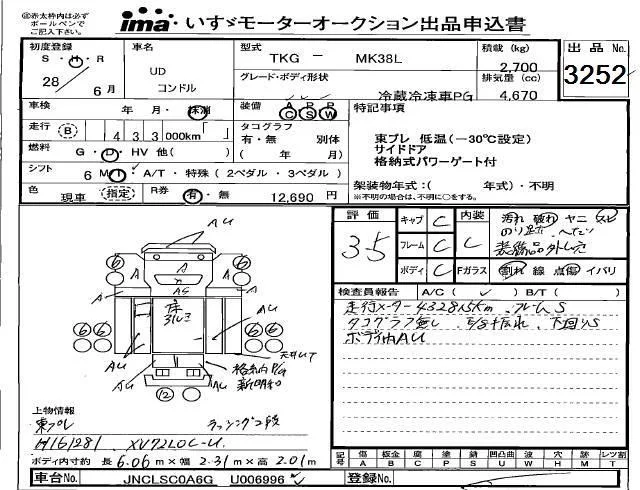 ㊟赤太枠内は必ず
ボールペンで
ご記入下さい。
ima いすゞモーターオークション出品申込書
初度登録
S・H・R
28/6月
車名
UD
コンドル
型式
TKG － MK38L
グレード・ボディ形状
冷蔵冷凍車PG
積載 (kg)
2,700
排気量 (cc)
4,670
出品No.
3252
車検
年・月・抹消
走行 B 433 000km
燃料 G・D・HV 他( )
シフト 6 M・I・A/T・特殊(2ペダル・3ペダル)
色 現車 指定
R券 有・無 12,690円
装備 A P R
C S W
タコグラフ
有・無 別体
( 年 月)
特記事項
東プレ 低温(－30℃設定)
サイドドア
格納式パワーゲート付
架装物年式:( 年式)・不明
※不明の場合は、不明に○をする。
評価
3.5
キャブ C
フレーム C
ボディ C
内装 C
Fガラス
汚れ 破れ ヤニ スレ
装飾品外し穴
割れ 線 点傷 イバリ
検査員報告 A/C( ✓ ) B/T( )
走行メーター43285km フレームS
タコグラフ無し 下回りS
ボディ内AU
AU
6 A A A 6
A AS A
床
AU AU
6 6 6 6
天井UT
AU AU
格納PG
新明和
12
上物情報
東プレ ラッシング2段
H161281 XV72LOC-U
ボディ内寸約 長 6.06m×幅 2.31m×高 2.01m
記号
傷 A
板金 B
腐 C
塗 P
錆 S
凹凸曲 U
波 W
穴 H
汚 M
レツ割 T
車台No. JNCLSC0A6G U006996 ✓
登録No.